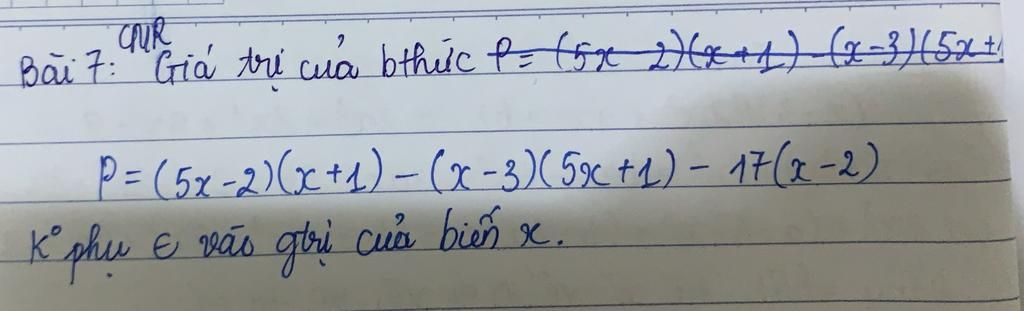 CMR
Bài 7: Giá trị của bthức P = (5x - 2)(x + 1) - (x - 3)(5x + 1
P = (5x - 2)(x + 1) - (x - 3)(5x + 1) - 17(x - 2)
K° phụ ∈ vào gtrị của biến x.